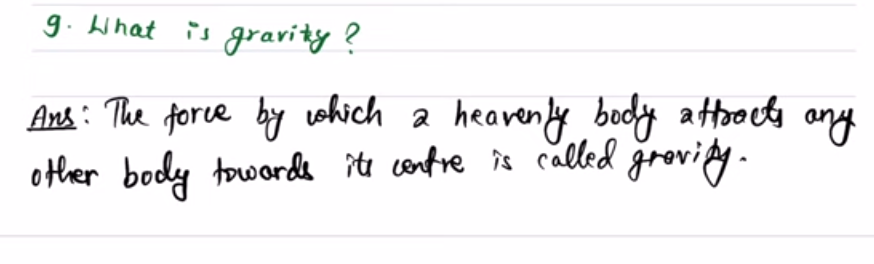 9. What is gravity?
Ans: The force by which a heavenly body attracts any
other body towards its centre is called gravity.